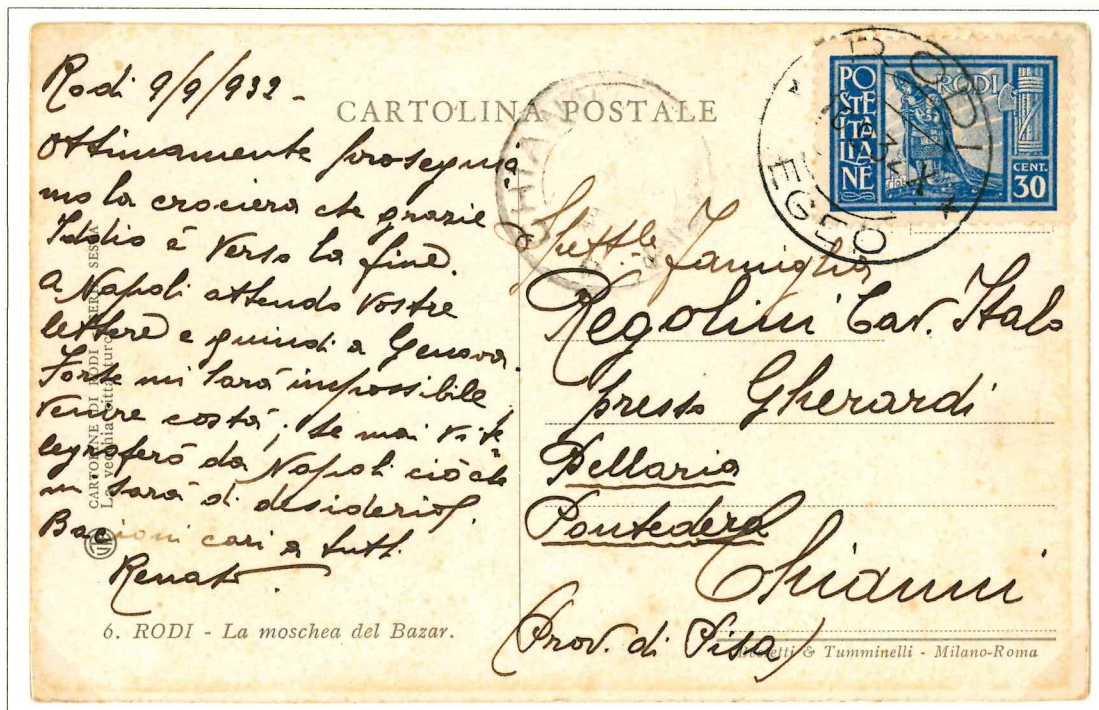 Rodi 9/9/932 -
CARTOLINA POSTALE
Ottimamente proseguia
mo la crociera che grazie
Iddio è verso la fine.
A Napoli attendo vostre
lettere e quindi a Genova.
Forse mi sarà impossibile
venire costà; se mai vi te
legraferò da Napoli ciò che
mi sarà di desiderio.
Bacioni cari a tutti.
Renato
6. RODI - La moschea del Bazar.
CARTOLINE DI RODI SERIE SESTA
La vecchia città turca
POSTE ITALIANE
RODI
CENT. 30
RODI
EGEO
CHIANNI
Spett.le famiglia
Regolini Cav. Italo
presso Gherardi
Pellaria
Pontedera
Chianni
(Prov. di Pisa)
& Tumminelli - Milano-Roma